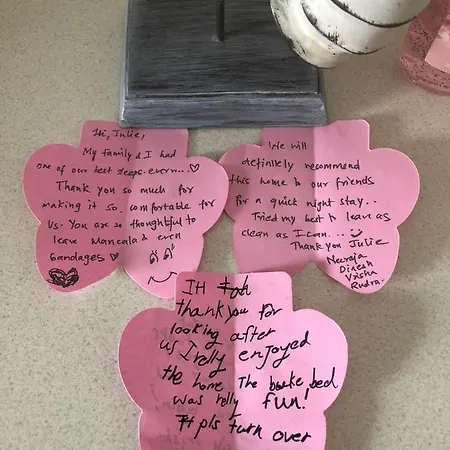 Hi, Julie,
My family & I had
one of our best sleeps. everrr...♡
Thank you so much for
making it so. comfortable for
us. You are so thoughtful to
leave Mancala & even
bandages ♡
We will
definitely recommend
this home to our friends
for a quick night stay..
Tried my best to leave as
clean as I can...
Thank you Julie
Neeraja
Dinesh
Vrisha
Rudra.
IH
thank you for
looking after
us I relly enjoyed
the home The bunke bed
was relly fun!
pls turn over